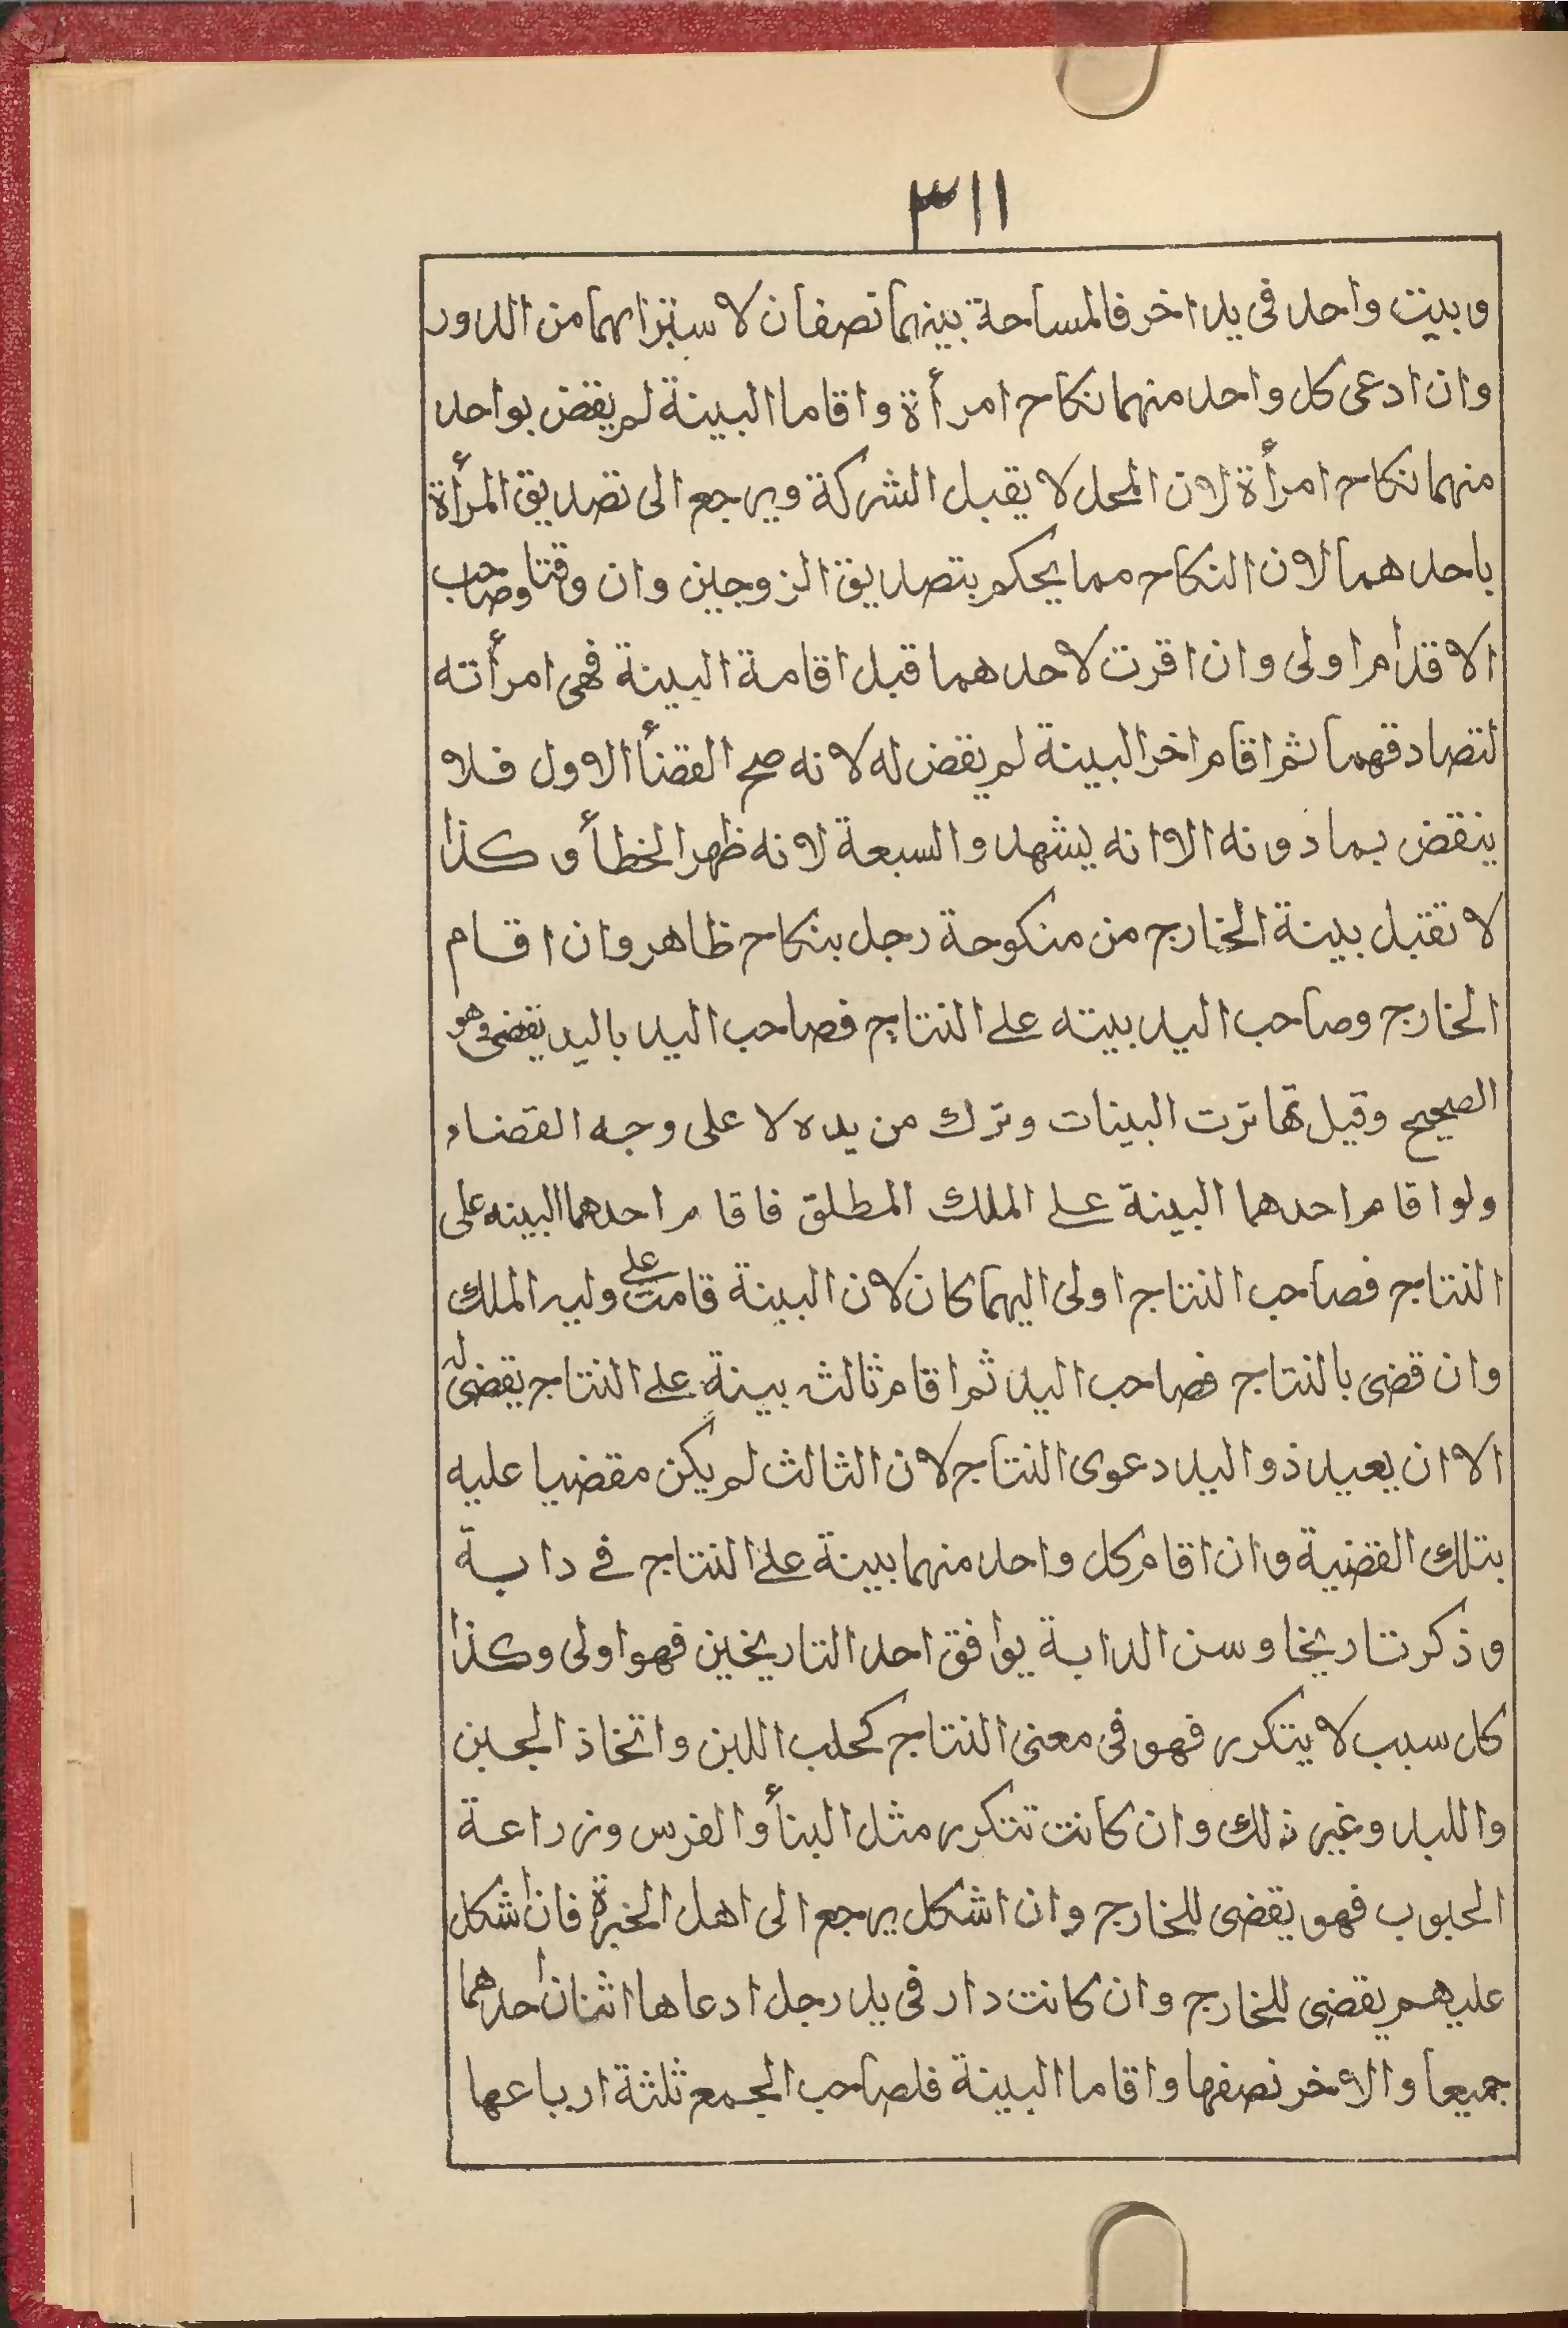 ٣١١
وبيت واحد فى يد اخر فالمساحة بينهما نصفان لا ستبرايهما من الدور
وان ادعى كل واحد منهما نكاح امرأة واقاما البينة لم يقض بواحد
منهما نكاح امرأة لان المحل لا يقبل الشركة ويرجع الى تصديق المرأة
باحدهما لان النكاح مما يحكم بتصديق الزوجين وان وقتا وصاحب
الاقدام اولى وان اقرت لاحدهما قبل اقامة البينة فهى امرأته
لتصادقهما ثم اقام اخر البينة لم يقض له لانه صح القضأ الاول فلا
ينقض بما دونه الا انه يشهد والسبعة لانه ظهر الخطأ وكذا
لا تقبل بينة الخارج من منكوحة رجل بنكاح ظاهر وان اقام
الخارج وصاحب اليد بيته على النتاج فصاحب اليد باليد يقضى وهو
الصحيح وقيل تهاترت البينات وترك من يده لا على وجه القضاء
ولو اقام احدهما البينة على الملك المطلق فاقام احدهما البينه على
النتاج فصاحب النتاج اولى اليهما كان لان البينة قامت على وليد الملك
وان قضى بالنتاج فصاحب اليد ثم اقام ثالث بينة على النتاج يقضى له
الا ان يعيد ذو اليد دعوى النتاج لان الثالث لم يكن مقضيا عليه
بتلك القضية وان اقام كل واحد منهما بينة على النتاج فى دابة
وذكر تاريخا وسن الدابة يوافق احد التاريخين فهو اولى وكذا
كل سبب لا يتكرر فهو فى معنى النتاج كحلب اللبن واتخاذ الجبن
واللبد وغير ذلك وان كانت تتكرر مثل البنأ والغرس وزراعة
الحبوب فهو يقضى للخارج وان اشكل يرجع الى اهل الخبرة فان اشكل
عليهم يقضى للخارج وان كانت دار فى يد رجل ادعاها اثنان احدهما
جميعا والاخر نصفها واقاما البينة فلصاحب الجمع ثلثة ارباعها